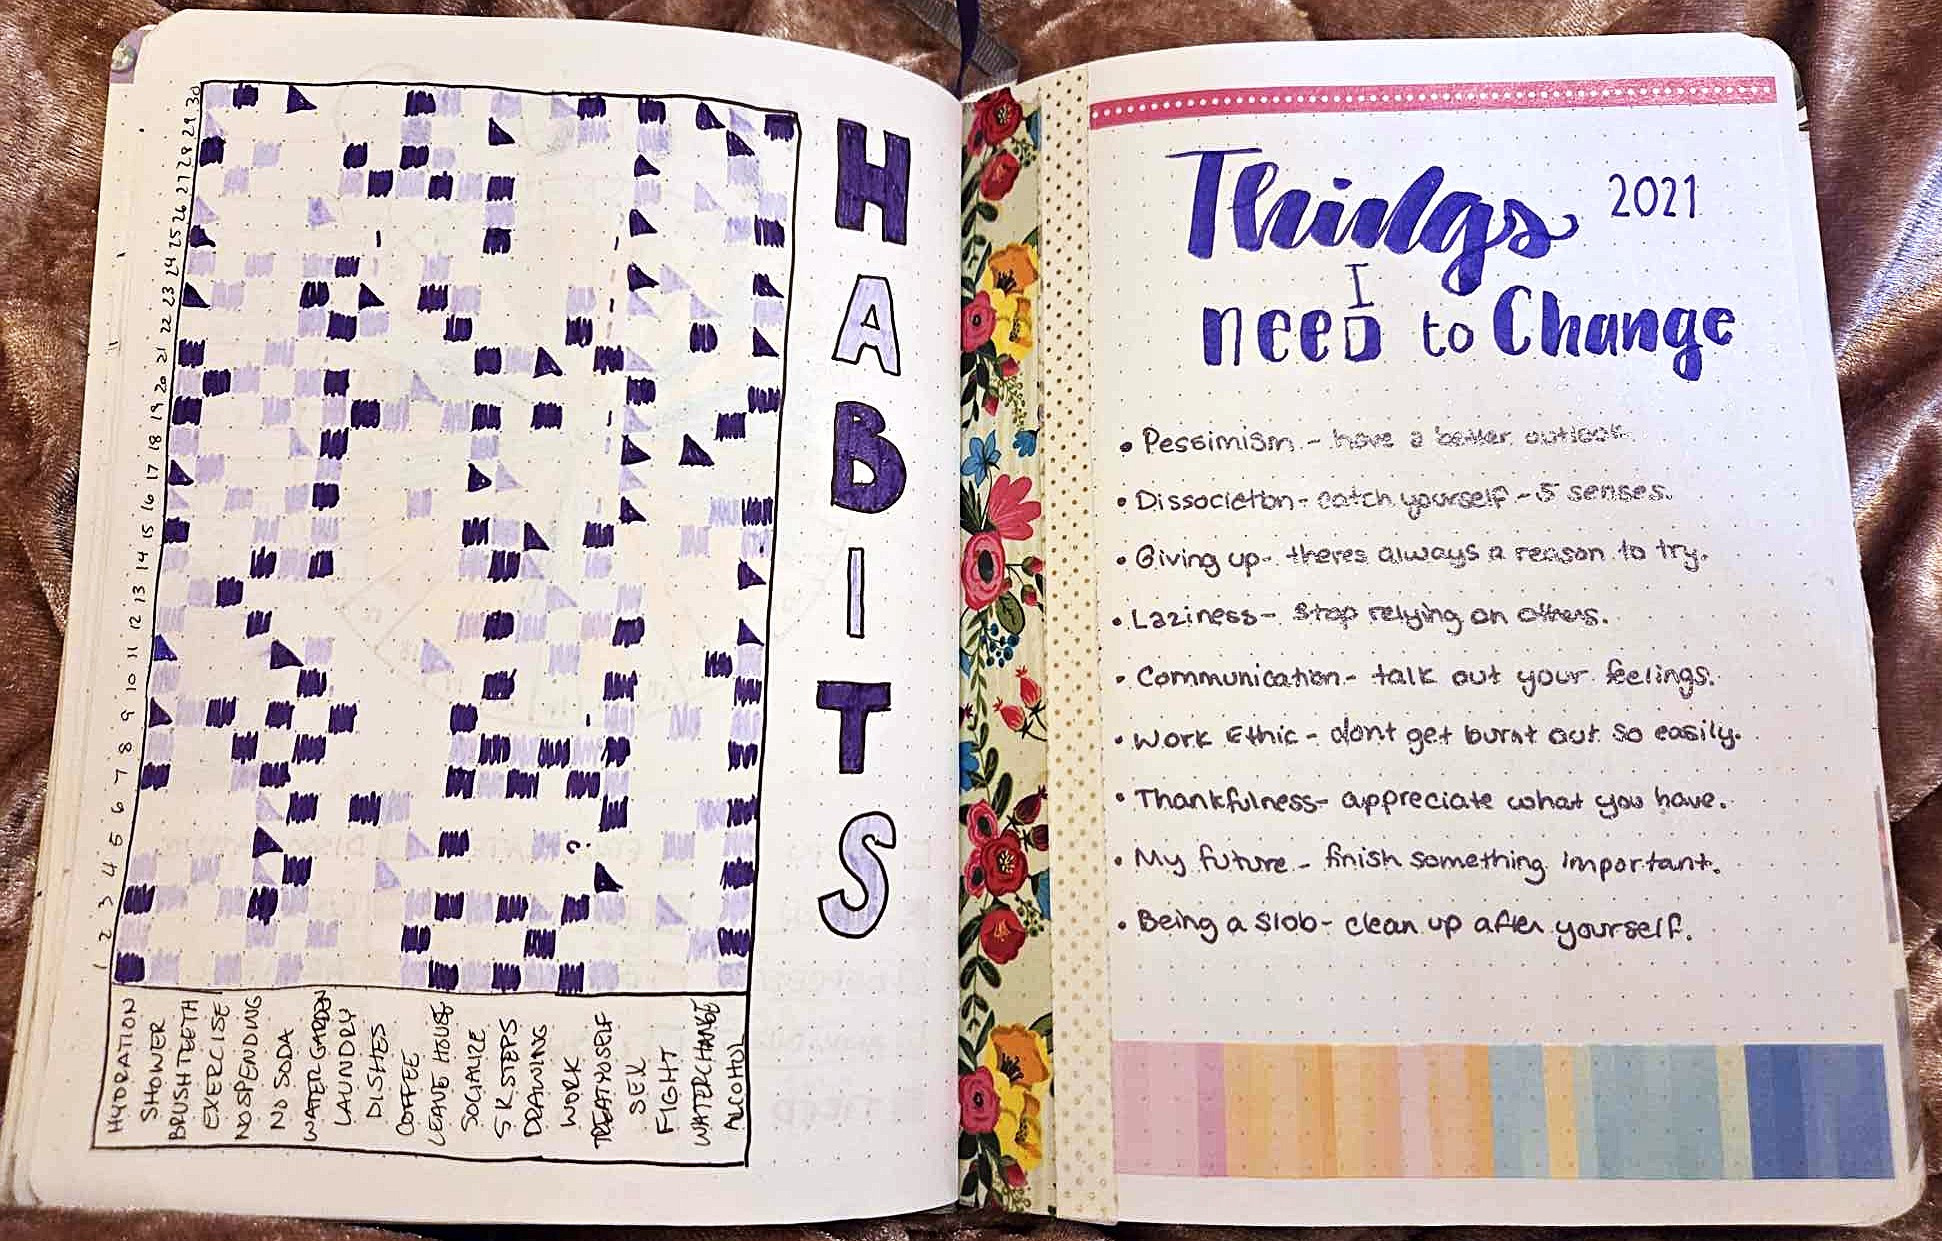 30
29
28
27
26
25
24
23
22
21
20
19
18
17
16
15
14
13
12
11
10
9
8
7
6
5
4
3
2
1
HYDRATION
SHOWER
BRUSH TEETH
EXERCISE
NO SPENDING
NO SODA
WATER GARDEN
LAUNDRY
DISHES
COFFEE
LEAVE HOUSE
SOCIALIZE
5K STEPS
DRAWING
WORK
TREATYOSELF
SEX
FIGHT
WATERCHANGE
ALCOHOL
?
HABITS
Things 2021
I
need to Change
• Pessimism - have a better outlook.
• Dissociation - catch yourself - 5 senses.
• Giving up - theres always a reason to try.
• Laziness - Stop relying on others.
• Communication - talk out your feelings.
• Work Ethic - dont get burnt out so easily.
• Thankfulness - appreciate what you have.
• My future - finish something important.
• Being a slob - clean up after yourself.